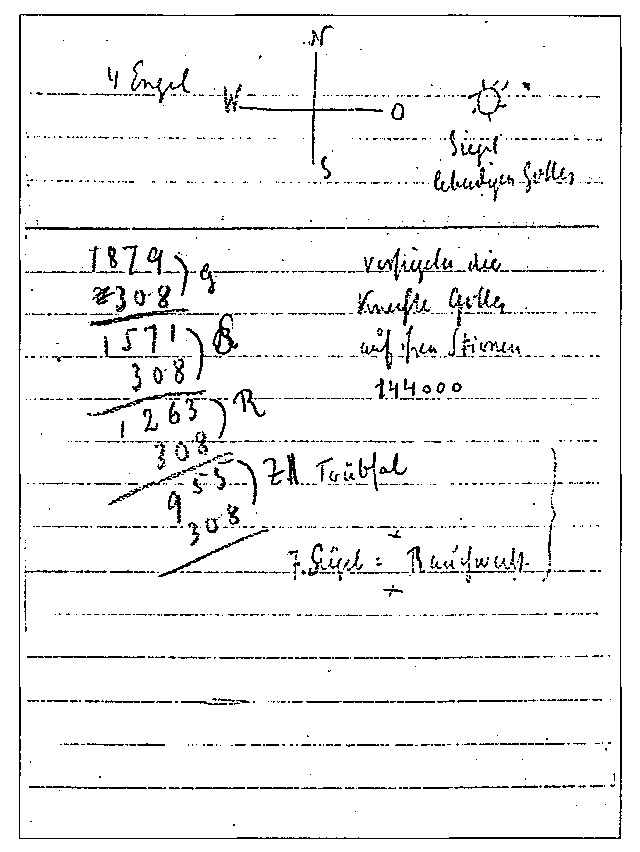 N
4 Engel
W O
S
Siegel
lebendigen Gottes
1879 g
308
1571
308
1263 R
308
955 Trübsal
308
versiegeln die
Knechte Gottes
auf ihren Stirnen
144000
7. Siegel =